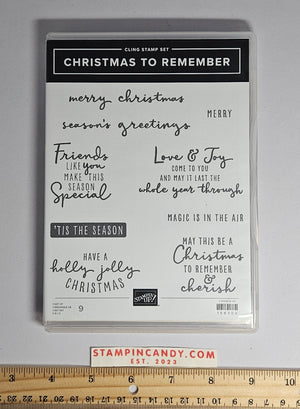 CLING STAMP SET
CHRISTMAS TO REMEMBER
merry christmas
MERRY
season's greetings
Friends
LIKE YOU
MAKE THIS
SEASON
Special
Love & Joy
COME TO YOU
AND MAY IT LAST THE
whole year through
MAGIC IS IN THE AIR
'TIS THE SEASON
MAY THIS BE A
Christmas
TO REMEMBER
&
cherish
HAVE A
holly jolly
CHRISTMAS
STAMPIN' UP!
9
STAMPINCANDY.COM
EST. 2023
1 2 3 4 5 6 7 8 9 10